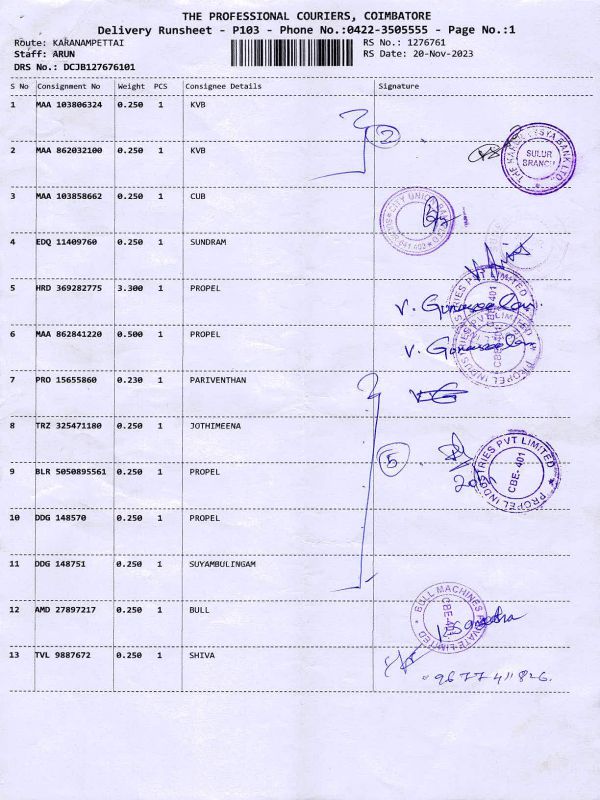 THE PROFESSIONAL COURIERS, COIMBATORE
Delivery Runsheet - P103 - Phone No.:0422-3505555 - Page No.:1
Route: KARANAMPETTAI RS No.: 1276761
Staff: ARUN RS Date: 20-Nov-2023
DRS No.: DCJB127676101
S No Consignment No Weight PCS Consignee Details Signature
1 MAA 103806324 0.250 1 KVB
2
2 MAA 862032100 0.250 1 KVB
SULUR BRANCH
3 MAA 103858662 0.250 1 CUB
4 EDQ 11409760 0.250 1 SUNDRAM
5 HRD 369282775 3.300 1 PROPEL
6 MAA 862841220 0.500 1 PROPEL
PROPEL INDUSTRIES PVT LIMITED CBE-401
7 PRO 15655860 0.230 1 PARIVENTHAN
8 TRZ 325471180 0.250 1 JOTHIMEENA
5
PROPEL INDUSTRIES PVT LIMITED CBE-401
9 BLR 5050895561 0.250 1 PROPEL
10 DDG 148570 0.250 1 PROPEL
11 DDG 148751 0.250 1 SUYAMBULINGAM
12 AMD 27897217 0.250 1 BULL
BULL MACHINES PRIVATE LIMITED CBE-401
13 TVL 9887672 0.250 1 SHIVA
9677411826.